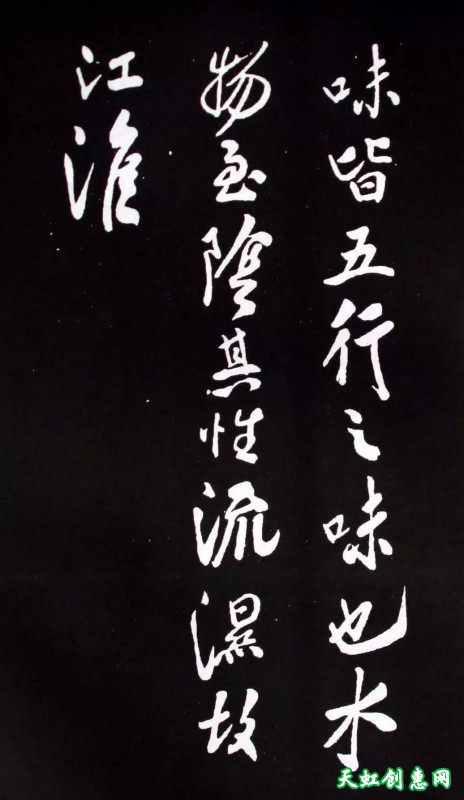 味皆五行之味也水
物至陰其性流濕故
江淮
天虹创惠网